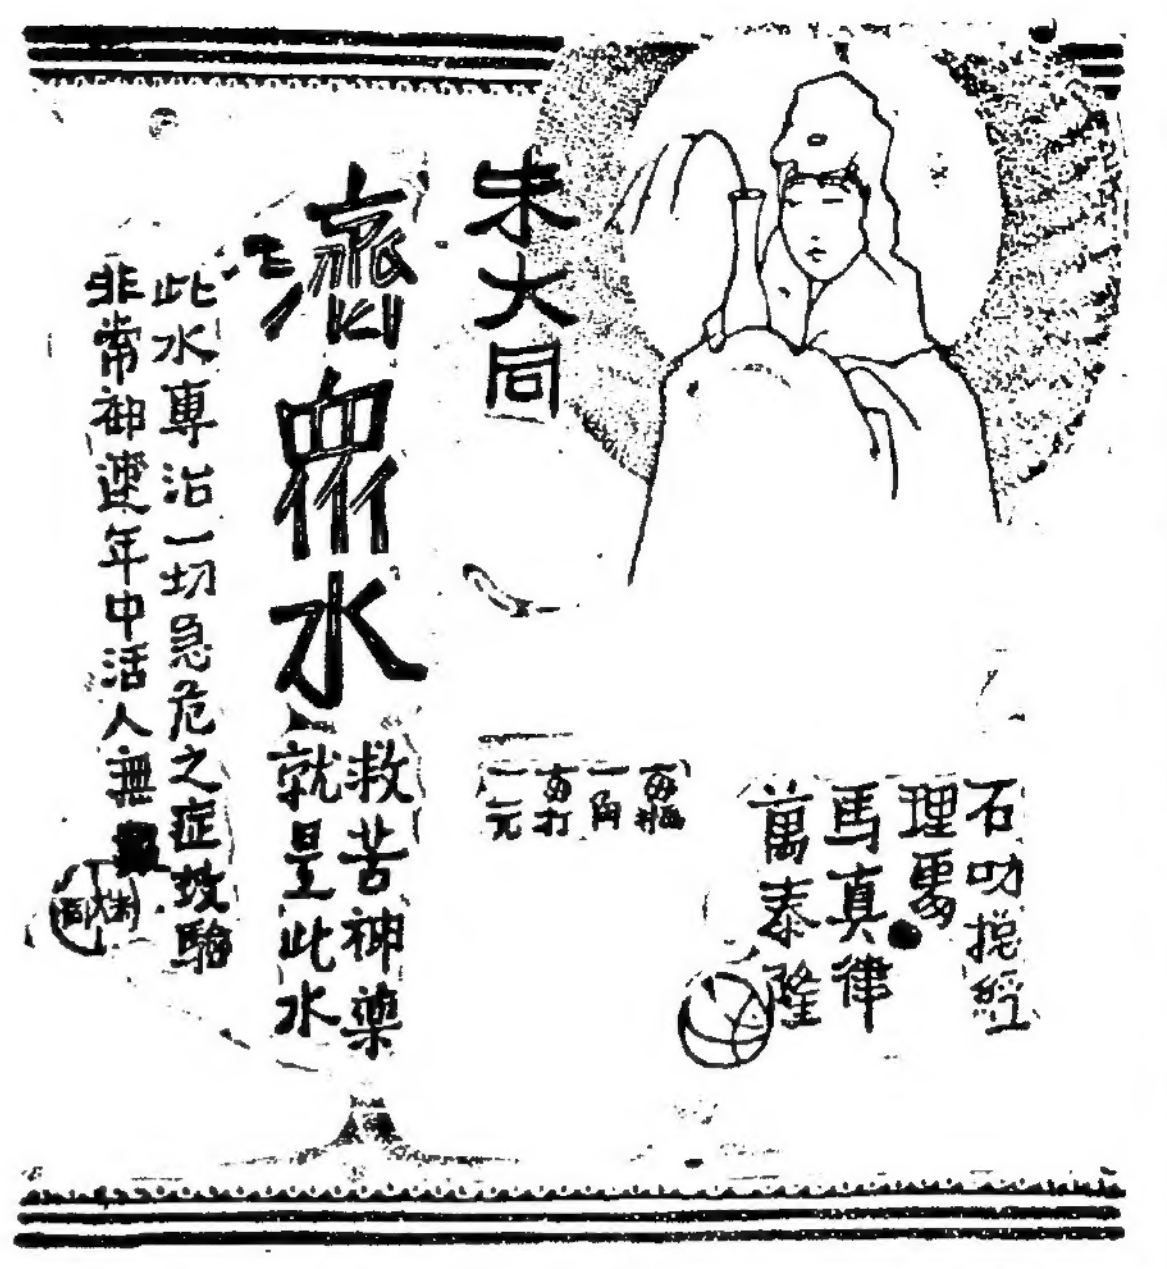 朱大同
濟眾水
救苦神藥
就是此水
此水專治一切急危之症效驗
非常神速年中活人無
每瓶
一角
每打
一元
石叻摠經
理處
馬真律
萬泰隆